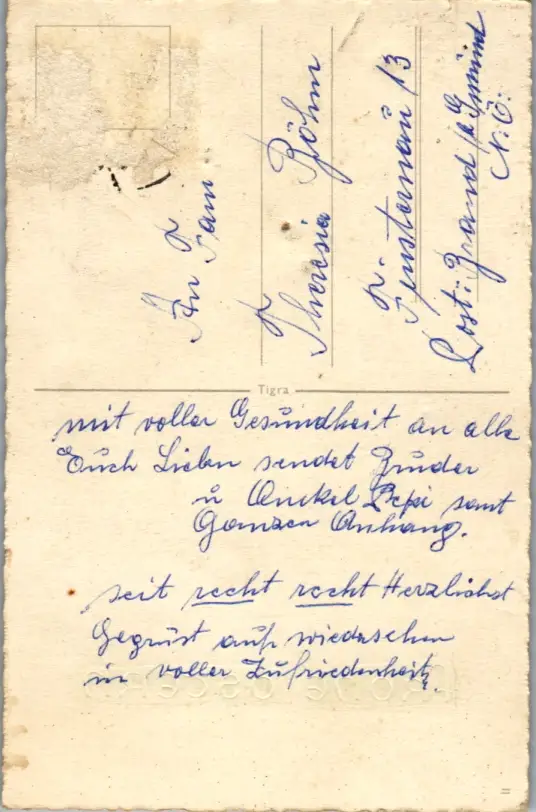 An Fam
Theresia Böhm
Finsternau 13
Post: Brand /a Gmünd
N.Ö.
Tigra
mit voller Gesundheit an alle
Euch Lieben sendet Bruder
u Onckel Pepi samt
Ganzen Anhang.
seit recht recht Herzlichst
Gegrüst auf wiedersehen
in voller Zufriedenheit.